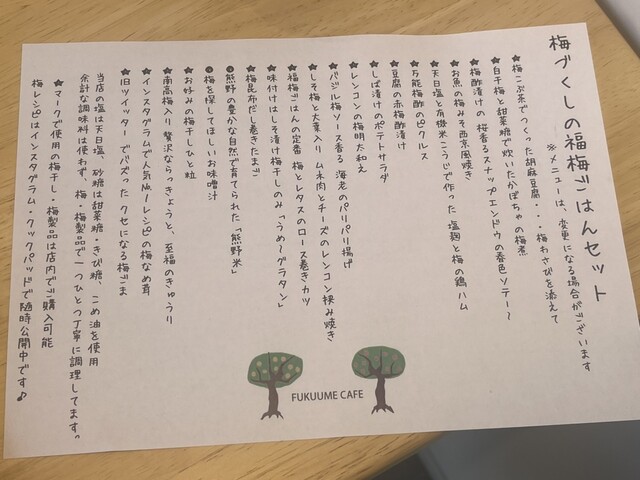 梅づくしの福梅ごはんセット
※メニューは、変更になる場合がございます
★梅こぶ茶でつくった胡麻豆腐・・・梅わさびを添えて
★白干梅と甜菜糖で炊いたかぼちゃの梅煮
★梅酢漬けの 桜香るスナップエンドウの春色ソテー～
★お魚の梅みそ西京風焼き
★天日塩と有機米こうじで作った 塩麹と梅の鶏ハム
★万能梅酢のピクルス
★豆腐の赤梅酢漬け
★しば漬けのポテトサラダ
★レンコンの梅明太和え
★バジル梅ソース香る 海老のパリパリ揚げ
★しそ梅と大葉入り ム木肉とチーズのレンコン挟み焼き
★福梅ごはんの定番 梅とレタスのロース巻きカツ
★味付けはしそ漬け梅干しのみ「うめ～グラタン」
★梅昆布だし巻きたまご
●熊野の豊かな自然で育てられた「熊野米」
●梅を探してほしいお味噌汁
★お好みの梅干しひと粒
★南高梅入り 贅沢ならっきょうと、至福のきゅうり
★インスタグラムで人気No.1レシピの梅なめ茸
★旧ツイッターでバズった クセになる梅ごま
当店の塩は天日塩、砂糖は甜菜糖・きび糖、こめ油を使用
余計な調味料は使わず、梅、梅製品で一つひとつ丁寧に調理してます。
★マークで使用の梅干し・梅製品は店内でご購入可能
梅レシピはインスタグラム・クックパッドで随時公開中です♪
FUKUUME CAFE